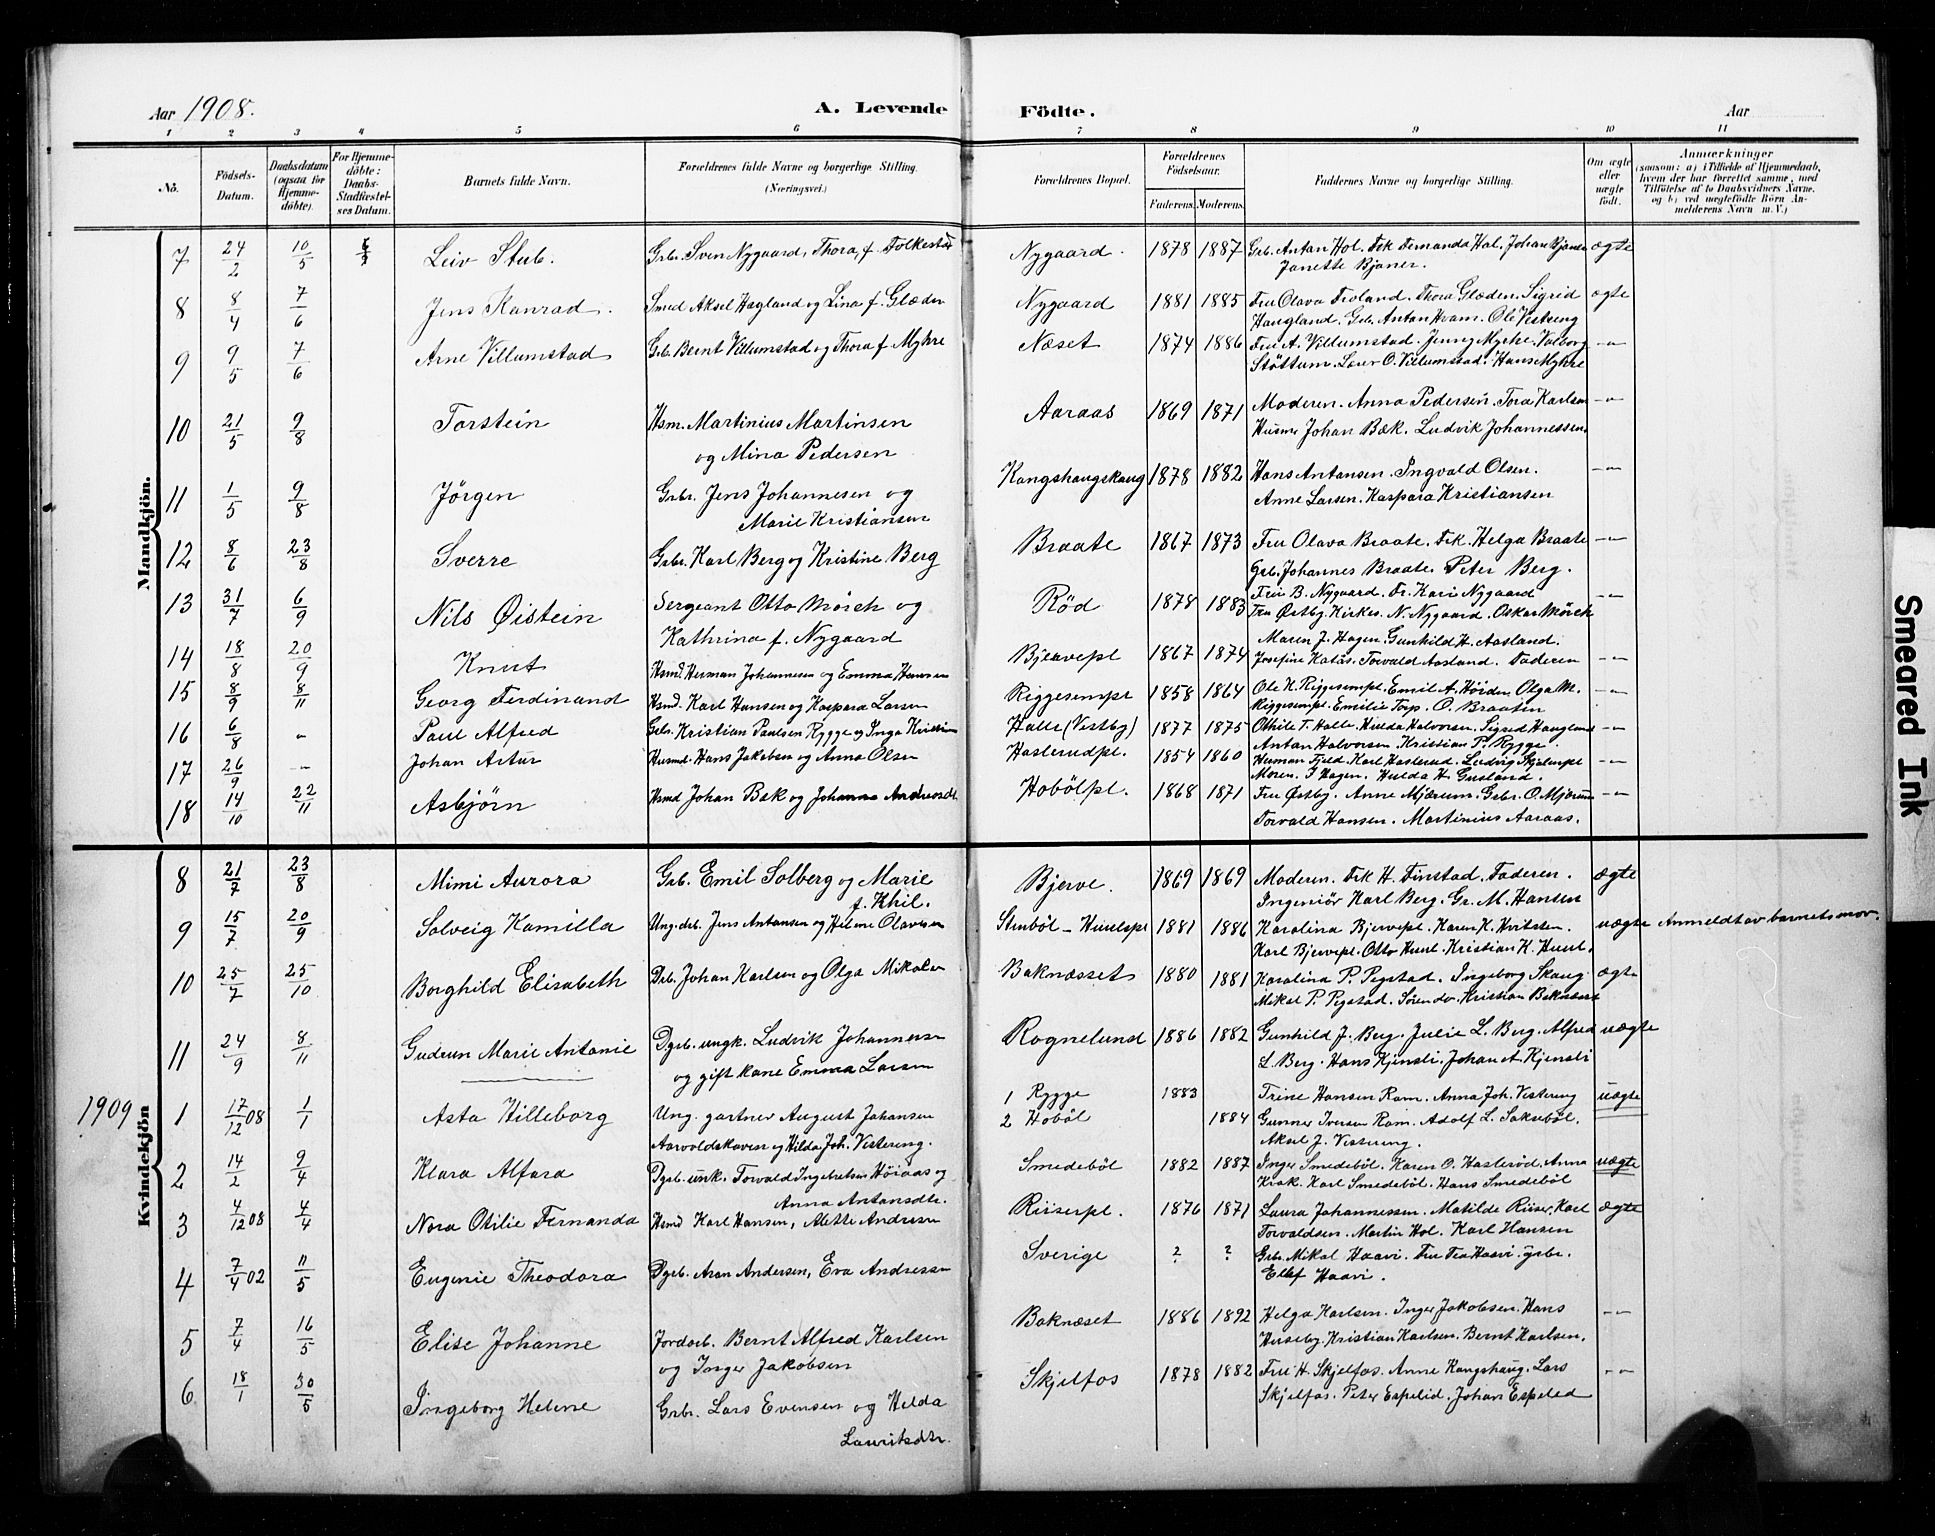 Aar 1908.
A. Levende Födte.
Aar
1 2 3 4 5 6 7 8 9 10 11
No.
Födsels-Datum.
Daabsdatum (ogsaa for Hjemmedöbte).
For Hjemmedöbte: Daabs-Stadfæstelses Datum.
Barnets fulde Navn.
Forældrenes fulde Navne og borgerlige Stilling. (Næringsvei.)
Forældrenes Bopæl.
Forældrenes Födselsaar. Faderens. Moderens.
Faddernes Navne og borgerlige Stilling.
Om ægte eller uægte født.
Anmærkninger
(saasom: a) i Tilfælde af Hjemmedaab, hvem der har forrettet samme, med Tilföielse af to Daabsvidners Navne, og b) ved uægtefödte Börn Anmelderens Navn m. V.)
Mandkjön.
7 24/2 10/5 Leiv Stub. Grbr. Sven Nygaard, Thora, f. Folkestad Nygaard. 1878 1887 Grb. Anton Hol. Frk Fernanda Hol. Johan Bjaner ægte
Janette Bjaner.
8 8/4 7/6 Jens Konrad. Smed Aksel Hagland og Lina f. Glæden Nygaard 1881 1885 Fru Olava Froland. Thora Glæden. Sigrid ægte
Haugland. Grb. Anton Hvam. Ole Vistreng
9 9/5 7/6 Arne Villumstad Grb. Bernt Villumstad og Thora f Myhre Næset 1874 1886 Fru A. Villumstad. Jenny Myrhe. Valborg -"-
Støttum. Laur O. Villumstad. Hans Myhre
10 21/5 9/8 Torstein Hsm. Martinius Martinsen Aaraas 1869 1871 Moderen. Anna Pedersen. Tora Karlsen -"-
og Mina Pedersen Husm Johan Bæk. Ludvik Johannessen.
11 1/5 9/8 Jörgen Grbr. Jens Johannesen og Kongshaugskaug 1878 1882 Hans Antonsen. Ingvald Olsen. -"-
Marie Kristiansen Anne Larsen. Kaspara Kristiansen
12 8/6 23/8 Sverre Grbr. Karl Berg og Kristine Berg Braate 1867 1873 Fru Olava Braate. Frk. Helga Braate -"-
Grb. Johannes Braate. Peter Berg.
13 31/7 6/9 Nils Øistein Sergeant Otto Mörch og Röd 1878 1883 Fru B. Nygaard. Fr. Kari Nygaard -"-
Kathrina f. Nygaard Fru Østby. Kirkes. N. Nygaard. Oskar Mörch
14 18/8 20/9 Knut Hsmd. Herman Johannesen og Emma Hansen Bjervepl 1867 1874 Maren J. Hagen. Gunhild H. Aasland.
Josefine Katås. Torvald Aasland. Faderen -"-
15 8/9 8/11 Georg Ferdinand Hsmd. Karl Hansen og Kaspara Larsen Riggesempl 1858 1864 Ole K. Riggesempl. Emil A. Höiden. Olga M. -"-
Riggesempl. Emilie Torp. O. Braaten
16 6/8 " Paul Alfred Grbr. Kristian Paulsen Rygge og Inga Kristin Halle (Vestby) 1877 1875 Othile T. Halle. Hulda Halvorsen. Sigrid Haugland -"-
Anton Halvorsen. Kristian P. Rygge.
17 26/9 -"- Johan Artur Husmd. Hans Jakobsen og Anna Olsen Haslerudpl. 1854 1860 Herman Fjeld. Karl Haslerud. Ludvig Skjelmpl -"-
Moren. J Hagen. Hulda H. Gusland.
18 14/10 22/11 Asbjörn Hsmd Johan Bæk og Johanna Andreasdt. Hobölpl. 1868 1871 Fru Østby. Anne Mjærum. Grbr. O. Mjærum -"-
Torvald Hansen. Martinius Aaraas.
Kvindekjön
8 21/7 23/8 Mimi Aurora Grb. Emil Solberg og Marie Bjerve. 1869 1869 Moderen. Frk H. Finstad. Faderen. ægte
f. Khil. Ingeniör Karl Berg. Gr. M. Hansen
9 15/7 20/9 Solveig Kamilla Ung. arb. Jens Antonsen og Helene Olavesen Stenböl - Huuelspl 1881 1886 Karolina Bjervepl. Karen K. Hvitsten. uægte Anmeldt av barnets mor.
Karl Bjervepl. Otto Huul. Kristian K. Huul.
10 25/7 25/10 Borghild Elisabeth Grb. Johan Karlsen og Olga Mikalsen Baknæsset 1880 1881 Karolina P. Pegstad. Ingeborg Skaug ægte
Mikal P. Pegstad. Sören do. Kristian Baknæset
11 24/9 8/11 Gudrun Marie Antonie Dgrb. ungk. Ludvik Johannesen Rognelund 1886 1882 Gunhild J. Berg. Julie L. Berg. Alfred uægte
og gift kone Emma Larsen L. Berg. Hans Kjensli. Johan A. Kjensli
1909 1 17/12 08 1/1 Asta Hilleborg Ung. gartner August Johansen 1 Rygge 1883 Trine Hansen Ram. Anna Joh. Vistereng uægte
Aarvoldskoven og Hilda Joh. Vistereng. 2 Hoböl 1884 Gunner Iversen Ram. Adolf L. Sakseböl.
Aksel J. Vistereng.
2 14/2 9/4 Klara Alfara Dgrb. unk. Torvald Ingebretsen Höiaas og Smedeböl 1882 1887 Inger Smedeböl. Karen O. Hasleröd. Anna uægte
Anna Antonsdtr. Krok. Karl Smedeböl. Hans Smedeböl
3 4/12 08 4/4 Nora Otilie Fernanda Hsmd Karl Hansen, Alette Andresen Riiserpl. 1876 1871 Laura Johannessen. Matilde Riiser. Karl ægte
Torvaldsen. Martin Hol. Karl Hansen
4 7/4 02 11/5 Eugenie Theodora Dgrb. Aron Andersen, Eva Andresen Sverige ? ? Grbr. Mikal Haavi. Fru Tea Haavi. grbr.
Ellef Haavi.
5 7/4 16/5 Elise Johanne Jordarb. Bernt Alfred Karlsen Baknæset 1886 1892 Helga Karlsen. Inger Jakobsen. Hans -"-
og Inger Jakobsen Huseby. Kristian Karlsen. Bernt Karlsen.
6 18/1 30/5 Ingeborg Helene Grbr. Lars Evensen og Helda Skjelfos 1878 1882 Fru H. Skjelfos. Anne Kongshaug. Lars -"-
Lauritsdtr. Skjelfos. Peter Espelid. Johan Espelid
Smeared Ink